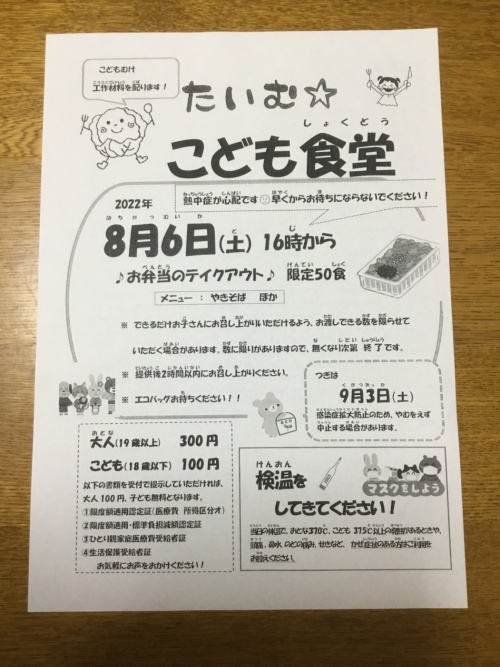 こどもむけ
こうさくざいりょう くば
工作材料を配ります！
たいむ☆
しょくどう
こども食堂
ねっちゅうしょう しんぱい はや ま
熱中症が心配です 早くからお待ちにならないでください！
2022年
はちがつむいか ど じ
8月6日(土) 16時から
べんとう げんてい しょく
♪お弁当のテイクアウト♪ 限定50食
メニュー ： やきそば ほか
※ できるだけお子さんにお召し上がりいただけるよう、お渡しできる数を限らせて
いただく場合があります。数に限りがありますので、無くなり次第 終了です。
※ 提供後2時間以内にお召し上がりください。
※ エコバックお持ちください！！
つぎは
くがつみっか ど
9月3日(土)
感染症拡大防止のため、やむをえず
中止する場合があります。
おとな
大人(19歳以上) 300円
こども(18歳以下) 100円
以下の書類を受付で提示していただければ、
大人100円、子ども無料となります。
①限度額適用認定証(医療費 所得区分オ)
②限度額適用・標準負担減額認定証
③ひとり親家庭医療費受給者証
④生活保護受給者証
お気軽にお声をおかけください！
けんおん
検温を
してきてください！
マスクをしよう
当日の体温で、おとな37.0℃、こども 37.5℃以上の発熱があるときや、
頭痛、鼻水、のどの痛み、せきなど、かぜ症状のある方はご利用を
お控えください。